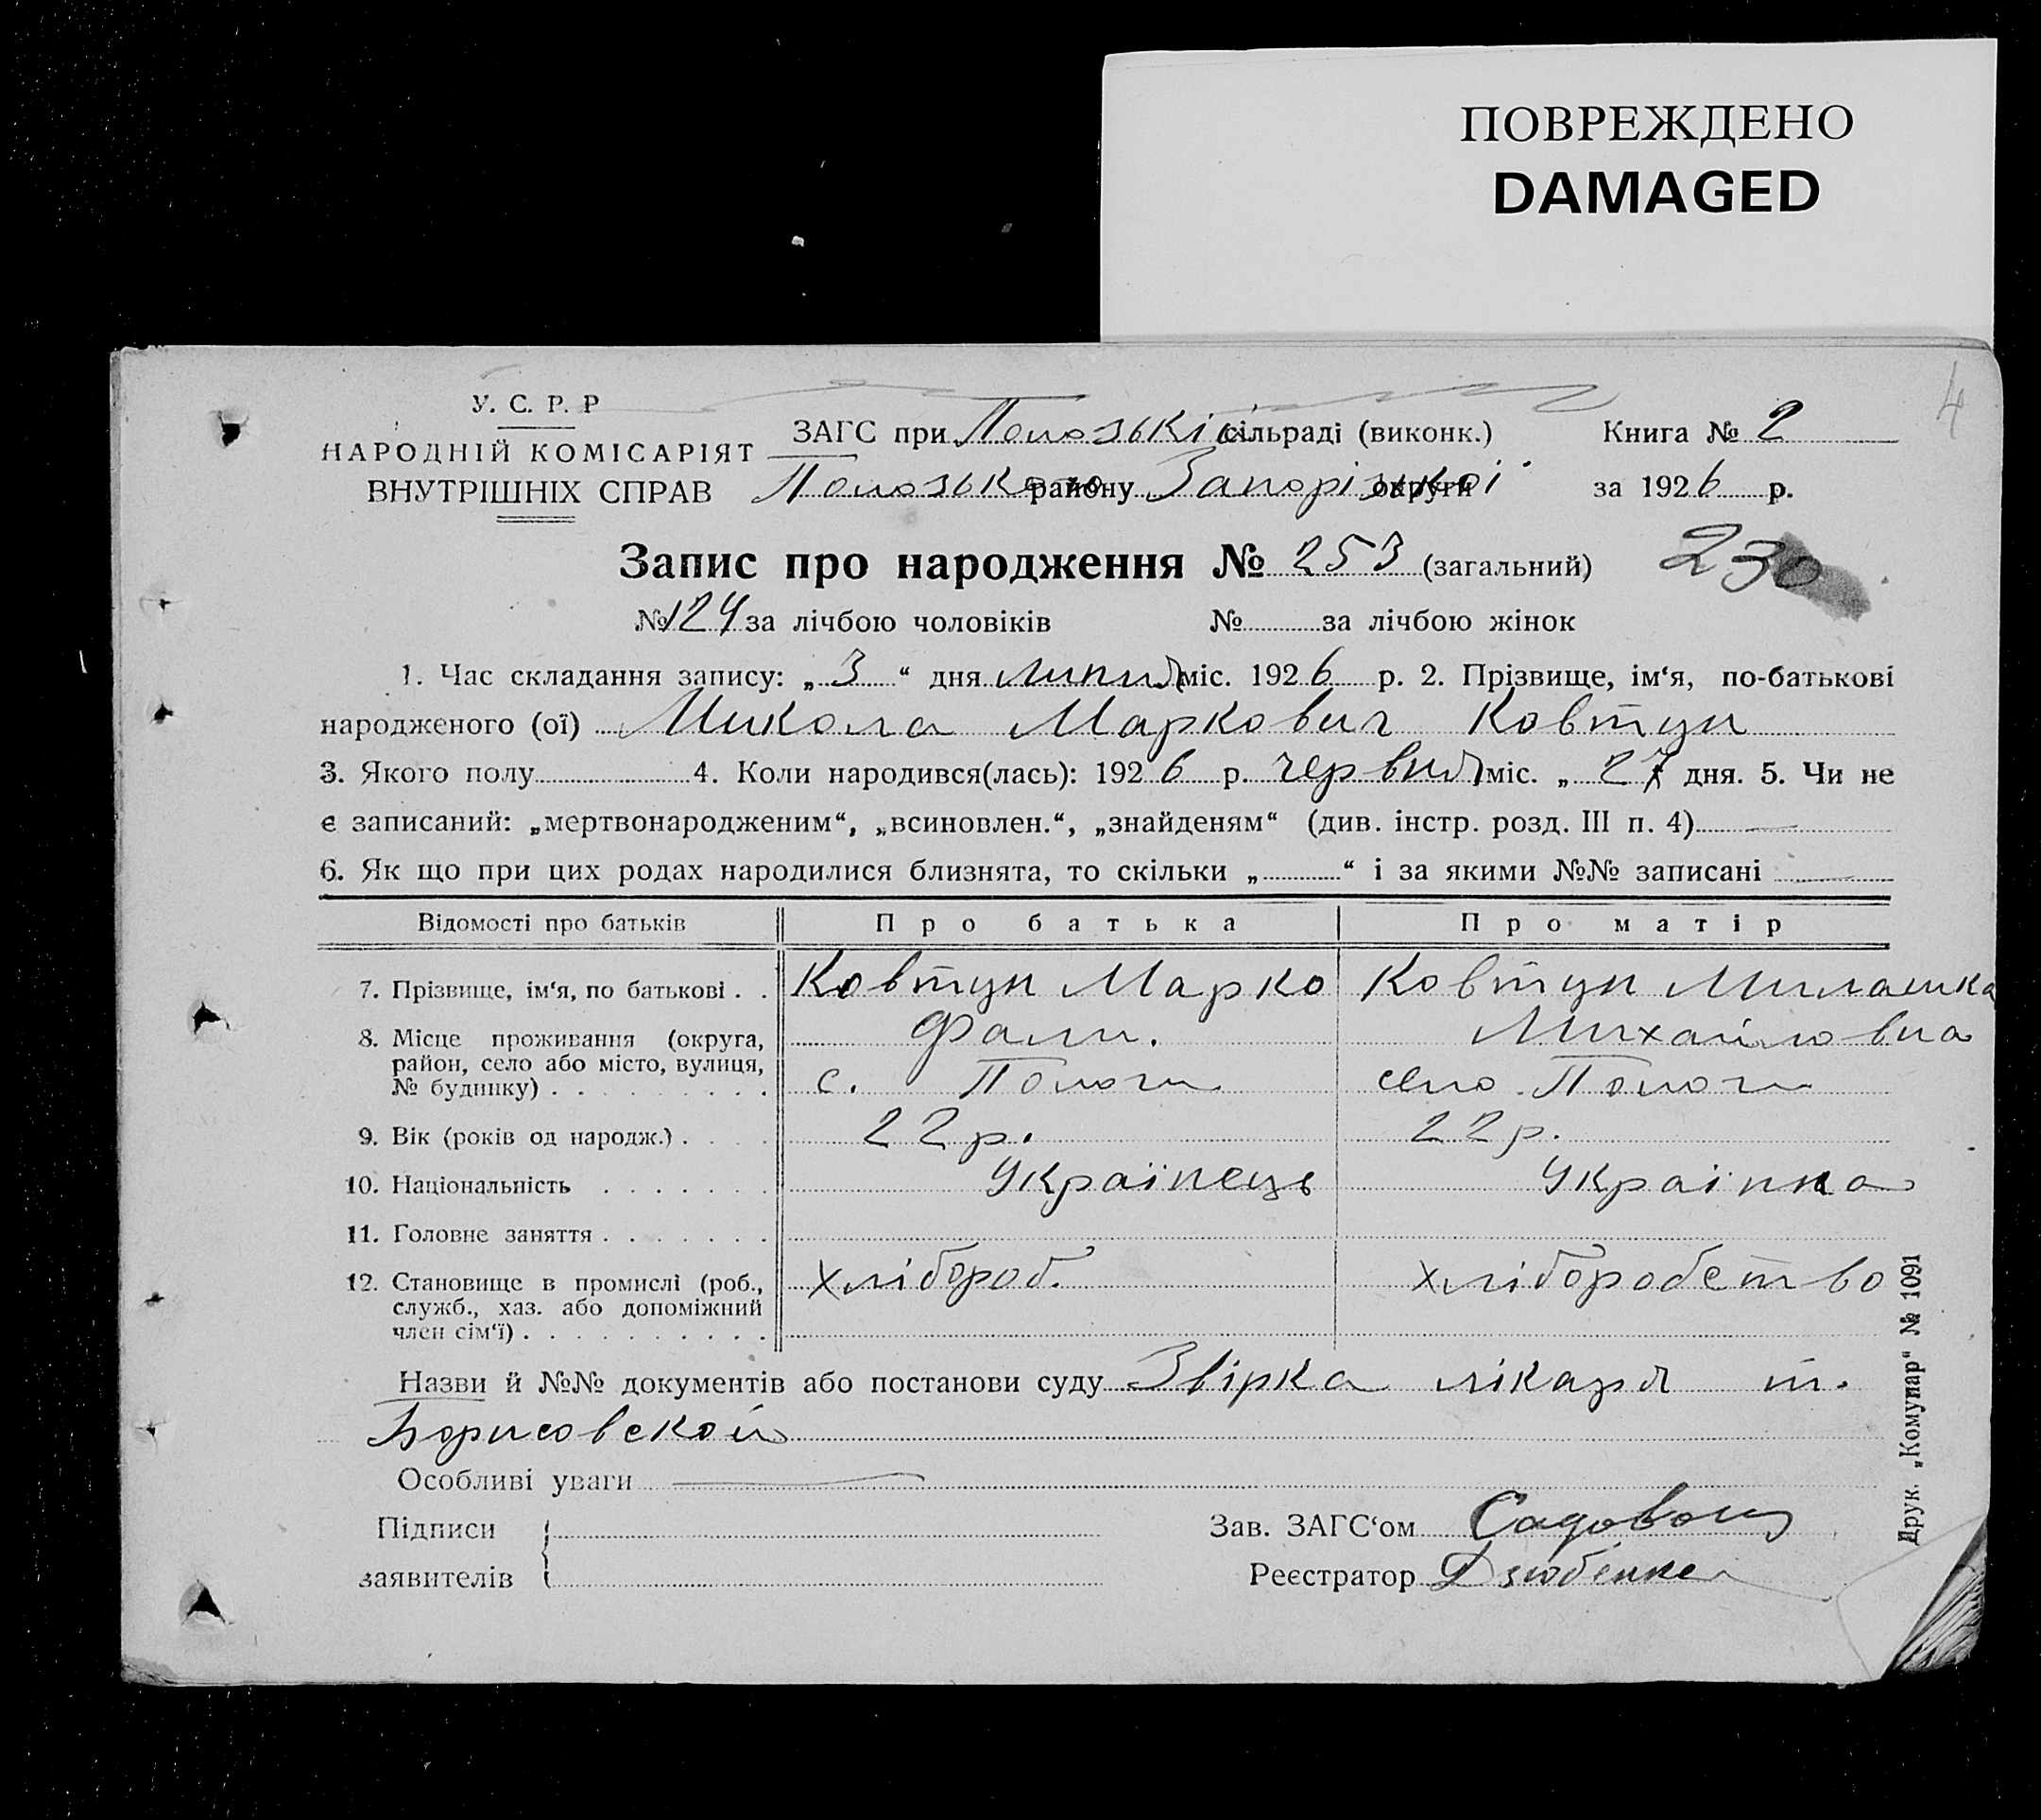 ПОВРЕЖДЕНО
DAMAGED
4
У. С. Р. Р
НАРОДНІЙ КОМІСАРІЯТ
ВНУТРІШНІХ СПРАВ
ЗАГС при Пологській сільраді (виконк.) Книга № 2
Пологського району Запорізької округи за 1926 р.
Запис про народження № 253 (загальний) 230
№ 124 за лічбою чоловіків № за лічбою жінок
1. Час складання запису: „ 3 “ дня липня міс. 1926 р. 2. Прізвище, ім‘я, по-батькові
народженого (ої) Микола Маркович Ковтун
3. Якого полу 4. Коли народився(лась): 1926 р. червня міс. „ 27 дня. 5. Чи не
є записаний: „мертвонародженим“, „всиновлен.“, „знайденям“ (див. інстр. розд. III п. 4)
6. Як що при цих родах народилися близнята, то скільки „ “ і за якими №№ записані
Відомості про батьків Про батька Про матір
7. Прізвище, ім‘я, по батькові . . Ковтун Марко Ковтун Милашка
8. Місце проживання (округа, Фали. Михайловна
район, село або місто, вулиця,
№ будинку) с. Пологи село Пологи
9. Вік (років од народж.) 22 р. 22 р.
10. Національність Українець Українка
11. Головне заняття
12. Становище в промислі (роб., хлібороб. хліборобство
служб., хаз. або допоміжний
член сім‘ї)
Назви й №№ документів або постанови суду Звірка лікаря т.
Борисовской
Особливі уваги
Підписи
заявителів
Зав. ЗАГС‘ом
Реєстратор Дзюбенко
Друк. „Комунар“ № 1091